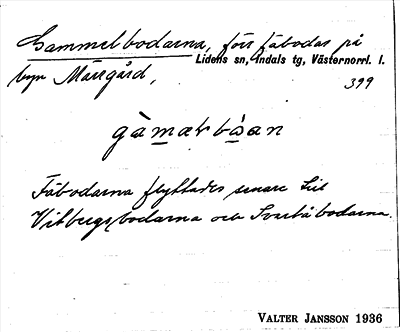 Gammelbodarna, förr fäbodar på
Lidens sn, Indals tg, Västernorrl. l.
byn Mårtgård,
399
gàmàrbo̊an
Fäbodarna flyttades senare till
Vitbergsbodarna och Svartåbodarna.
VALTER JANSSON 1936